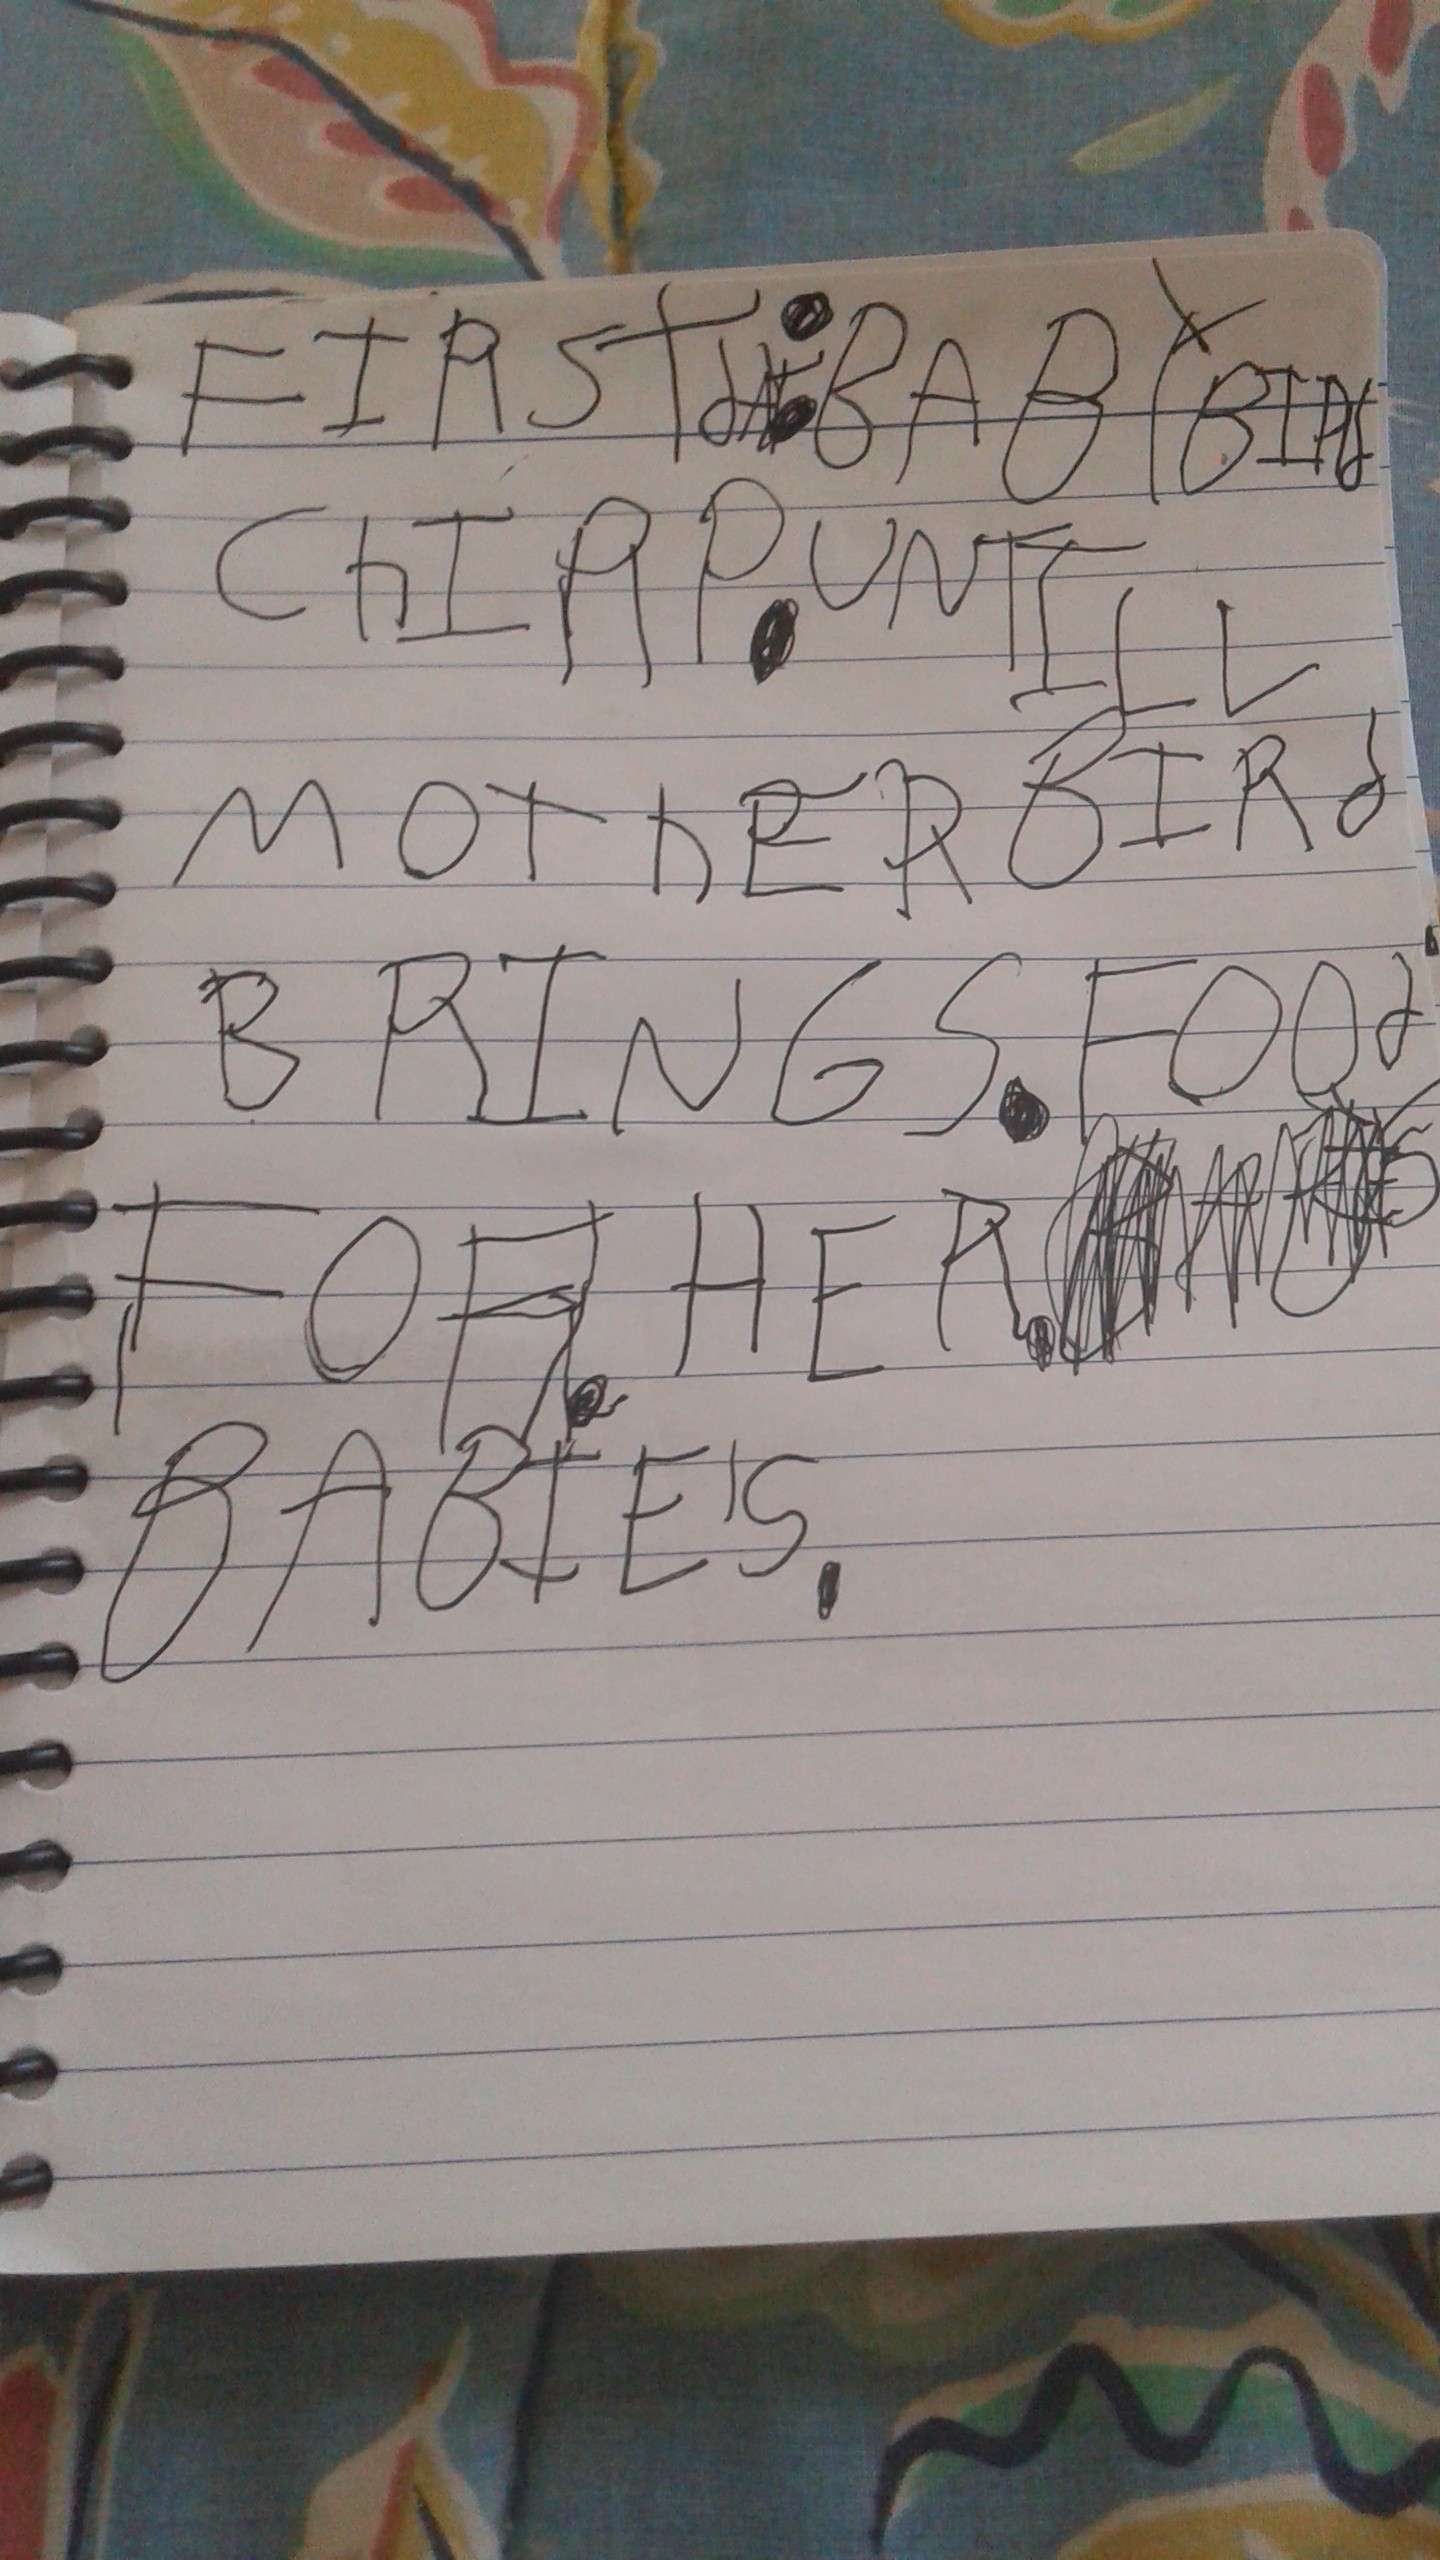 FIRST thE BABY BIRd
ChIRP. UNTILL
MOThER BIRd
BRINGS. FOOd
FOR. HER.
BABIE'S.